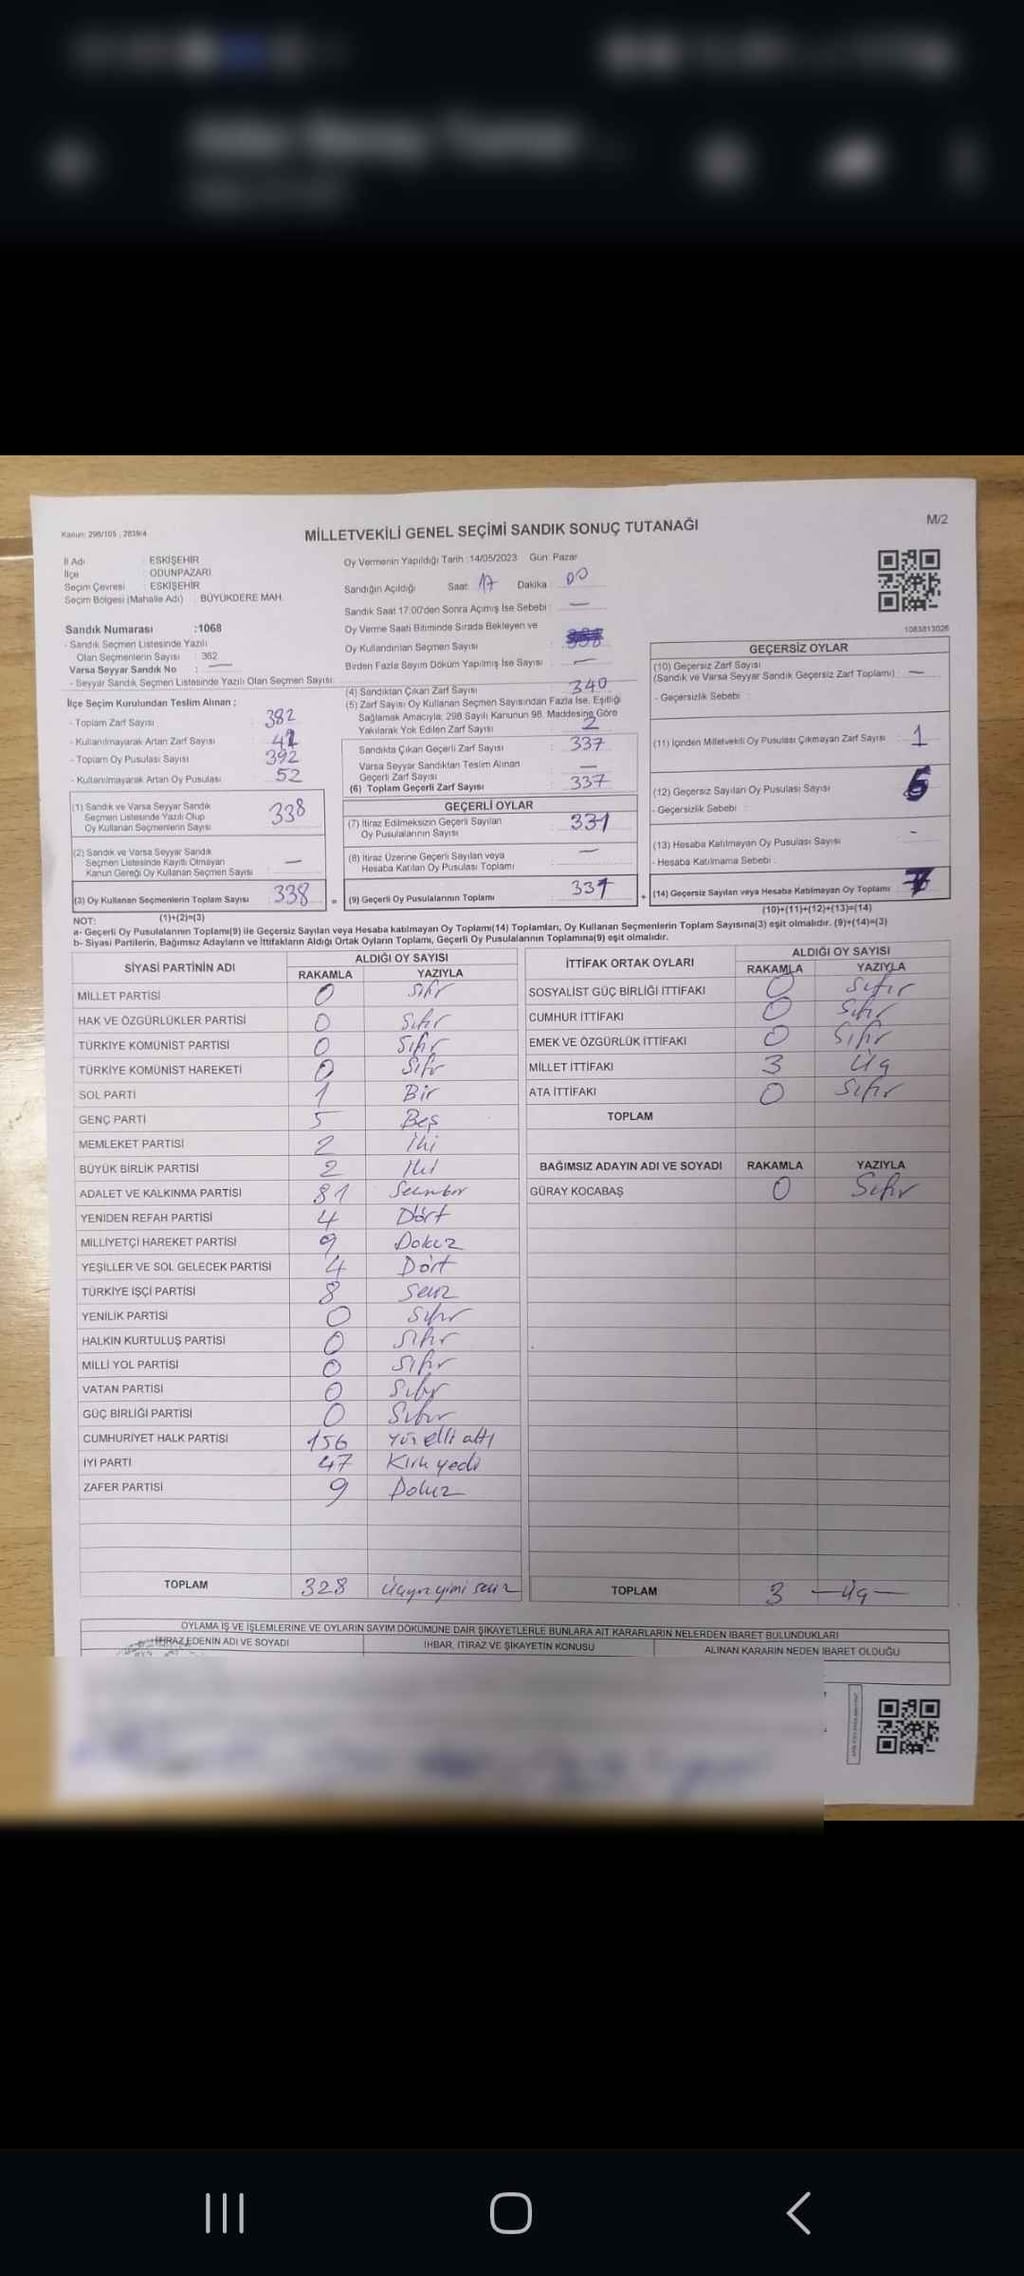 Kanun: 298/105 , 2839/4
MİLLETVEKİLİ GENEL SEÇİMİ SANDIK SONUÇ TUTANAĞI
M/2
İl Adı : ESKİŞEHİR
İlçe : ODUNPAZARI
Seçim Çevresi : ESKİŞEHİR
Seçim Bölgesi (Mahalle Adı) : BÜYÜKDERE MAH.
Sandık Numarası :1068
- Sandık Seçmen Listesinde Yazılı
Olan Seçmenlerin Sayısı : 362
Varsa Seyyar Sandık No : —
- Seyyar Sandık Seçmen Listesinde Yazılı Olan Seçmen Sayısı:
İlçe Seçim Kurulundan Teslim Alınan ;
- Toplam Zarf Sayısı : 382
- Kullanılmayarak Artan Zarf Sayısı :
- Toplam Oy Pusulası Sayısı : 392
- Kullanılmayarak Artan Oy Pusulası : 52
(1) Sandık ve Varsa Seyyar Sandık
Seçmen Listesinde Yazılı Olup
Oy Kullanan Seçmenlerin Sayısı : 338
(2) Sandık ve Varsa Seyyar Sandık
Seçmen Listesinde Kayıtlı Olmayan
Kanun Gereği Oy Kullanan Seçmen Sayısı : —
(3) Oy Kullanan Seçmenlerin Toplam Sayısı : 338
(1)+(2)=(3)
Oy Vermenin Yapıldığı Tarih :14/05/2023 Gün: Pazar
Sandığın Açıldığı Saat: 17 Dakika : 00
Sandık Saat 17:00'den Sonra Açılmış İse Sebebi : —
Oy Verme Saati Bitiminde Sırada Bekleyen ve
Oy Kullandırılan Seçmen Sayısı :
Birden Fazla Sayım Döküm Yapılmış İse Sayısı : —
(4) Sandıktan Çıkan Zarf Sayısı : 340
(5) Zarf Sayısı Oy Kullanan Seçmen Sayısından Fazla İse, Eşitliği
Sağlamak Amacıyla; 298 Sayılı Kanunun 98. Maddesine Göre
Yakılarak Yok Edilen Zarf Sayısı : 2
Sandıkta Çıkan Geçerli Zarf Sayısı : 337
Varsa Seyyar Sandıktan Teslim Alınan
Geçerli Zarf Sayısı : —
(6) Toplam Geçerli Zarf Sayısı : 337
GEÇERLİ OYLAR
(7) İtiraz Edilmeksizin Geçerli Sayılan
Oy Pusulalarının Sayısı : 331
(8) İtiraz Üzerine Geçerli Sayılan veya
Hesaba Katılan Oy Pusulası Toplamı : —
(9) Geçerli Oy Pusulalarının Toplamı : 331
1083813026
GEÇERSİZ OYLAR
(10) Geçersiz Zarf Sayısı
(Sandık ve Varsa Seyyar Sandık Geçersiz Zarf Toplamı) : —
- Geçersizlik Sebebi :
(11) İçinden Milletvekili Oy Pusulası Çıkmayan Zarf Sayısı : 1
(12) Geçersiz Sayılan Oy Pusulası Sayısı :
- Geçersizlik Sebebi :
(13) Hesaba Katılmayan Oy Pusulası Sayısı : -
- Hesaba Katılmama Sebebi :
(14) Geçersiz Sayılan veya Hesaba Katılmayan Oy Toplamı :
(10)+(11)+(12)+(13)=(14)
NOT:
a- Geçerli Oy Pusulalarının Toplamı(9) ile Geçersiz Sayılan veya Hesaba katılmayan Oy Toplamı(14) Toplamları, Oy Kullanan Seçmenlerin Toplam Sayısına(3) eşit olmalıdır. (9)+(14)=(3)
b- Siyasi Partilerin, Bağımsız Adayların ve İttifakların Aldığı Ortak Oyların Toplamı, Geçerli Oy Pusulalarının Toplamına(9) eşit olmalıdır.
SİYASİ PARTİNİN ADI ALDIĞI OY SAYISI
RAKAMLA YAZIYLA
MİLLET PARTİSİ 0 Sıfır
HAK VE ÖZGÜRLÜKLER PARTİSİ 0 Sıfır
TÜRKİYE KOMÜNİST PARTİSİ 0 Sıfır
TÜRKİYE KOMÜNİST HAREKETİ 0 Sıfır
SOL PARTİ 1 Bir
GENÇ PARTİ 5 Beş
MEMLEKET PARTİSİ 2 İki
BÜYÜK BİRLİK PARTİSİ 2 İki
ADALET VE KALKINMA PARTİSİ 81 Seksenbir
YENİDEN REFAH PARTİSİ 4 Dört
MİLLİYETÇİ HAREKET PARTİSİ 9 Dokuz
YEŞİLLER VE SOL GELECEK PARTİSİ 4 Dört
TÜRKİYE İŞÇİ PARTİSİ 8 Sekiz
YENİLİK PARTİSİ 0 Sıfır
HALKIN KURTULUŞ PARTİSİ 0 Sıfır
MİLLİ YOL PARTİSİ 0 Sıfır
VATAN PARTİSİ 0 Sıfır
GÜÇ BİRLİĞİ PARTİSİ 0 Sıfır
CUMHURİYET HALK PARTİSİ 156 Yüz elli altı
İYİ PARTİ 47 Kırk yedi
ZAFER PARTİSİ 9 Dokuz
TOPLAM 328 Üçyüzyirmi sekiz
İTTİFAK ORTAK OYLARI ALDIĞI OY SAYISI
RAKAMLA YAZIYLA
SOSYALİST GÜÇ BİRLİĞİ İTTİFAKI 0 Sıfır
CUMHUR İTTİFAKI 0 Sıfır
EMEK VE ÖZGÜRLÜK İTTİFAKI 0 Sıfır
MİLLET İTTİFAKI 3 Üç
ATA İTTİFAKI 0 Sıfır
TOPLAM
BAĞIMSIZ ADAYIN ADI VE SOYADI RAKAMLA YAZIYLA
GÜRAY KOCABAŞ 0 Sıfır
TOPLAM 3 —Üç—
OYLAMA İŞ VE İŞLEMLERİNE VE OYLARIN SAYIM DÖKÜMÜNE DAİR ŞİKAYETLERLE BUNLARA AİT KARARLARIN NELERDEN İBARET BULUNDUKLARI
İTİRAZ EDENİN ADI VE SOYADI İHBAR, İTİRAZ VE ŞİKAYETİN KONUSU ALINAN KARARIN NEDEN İBARET OLDUĞU